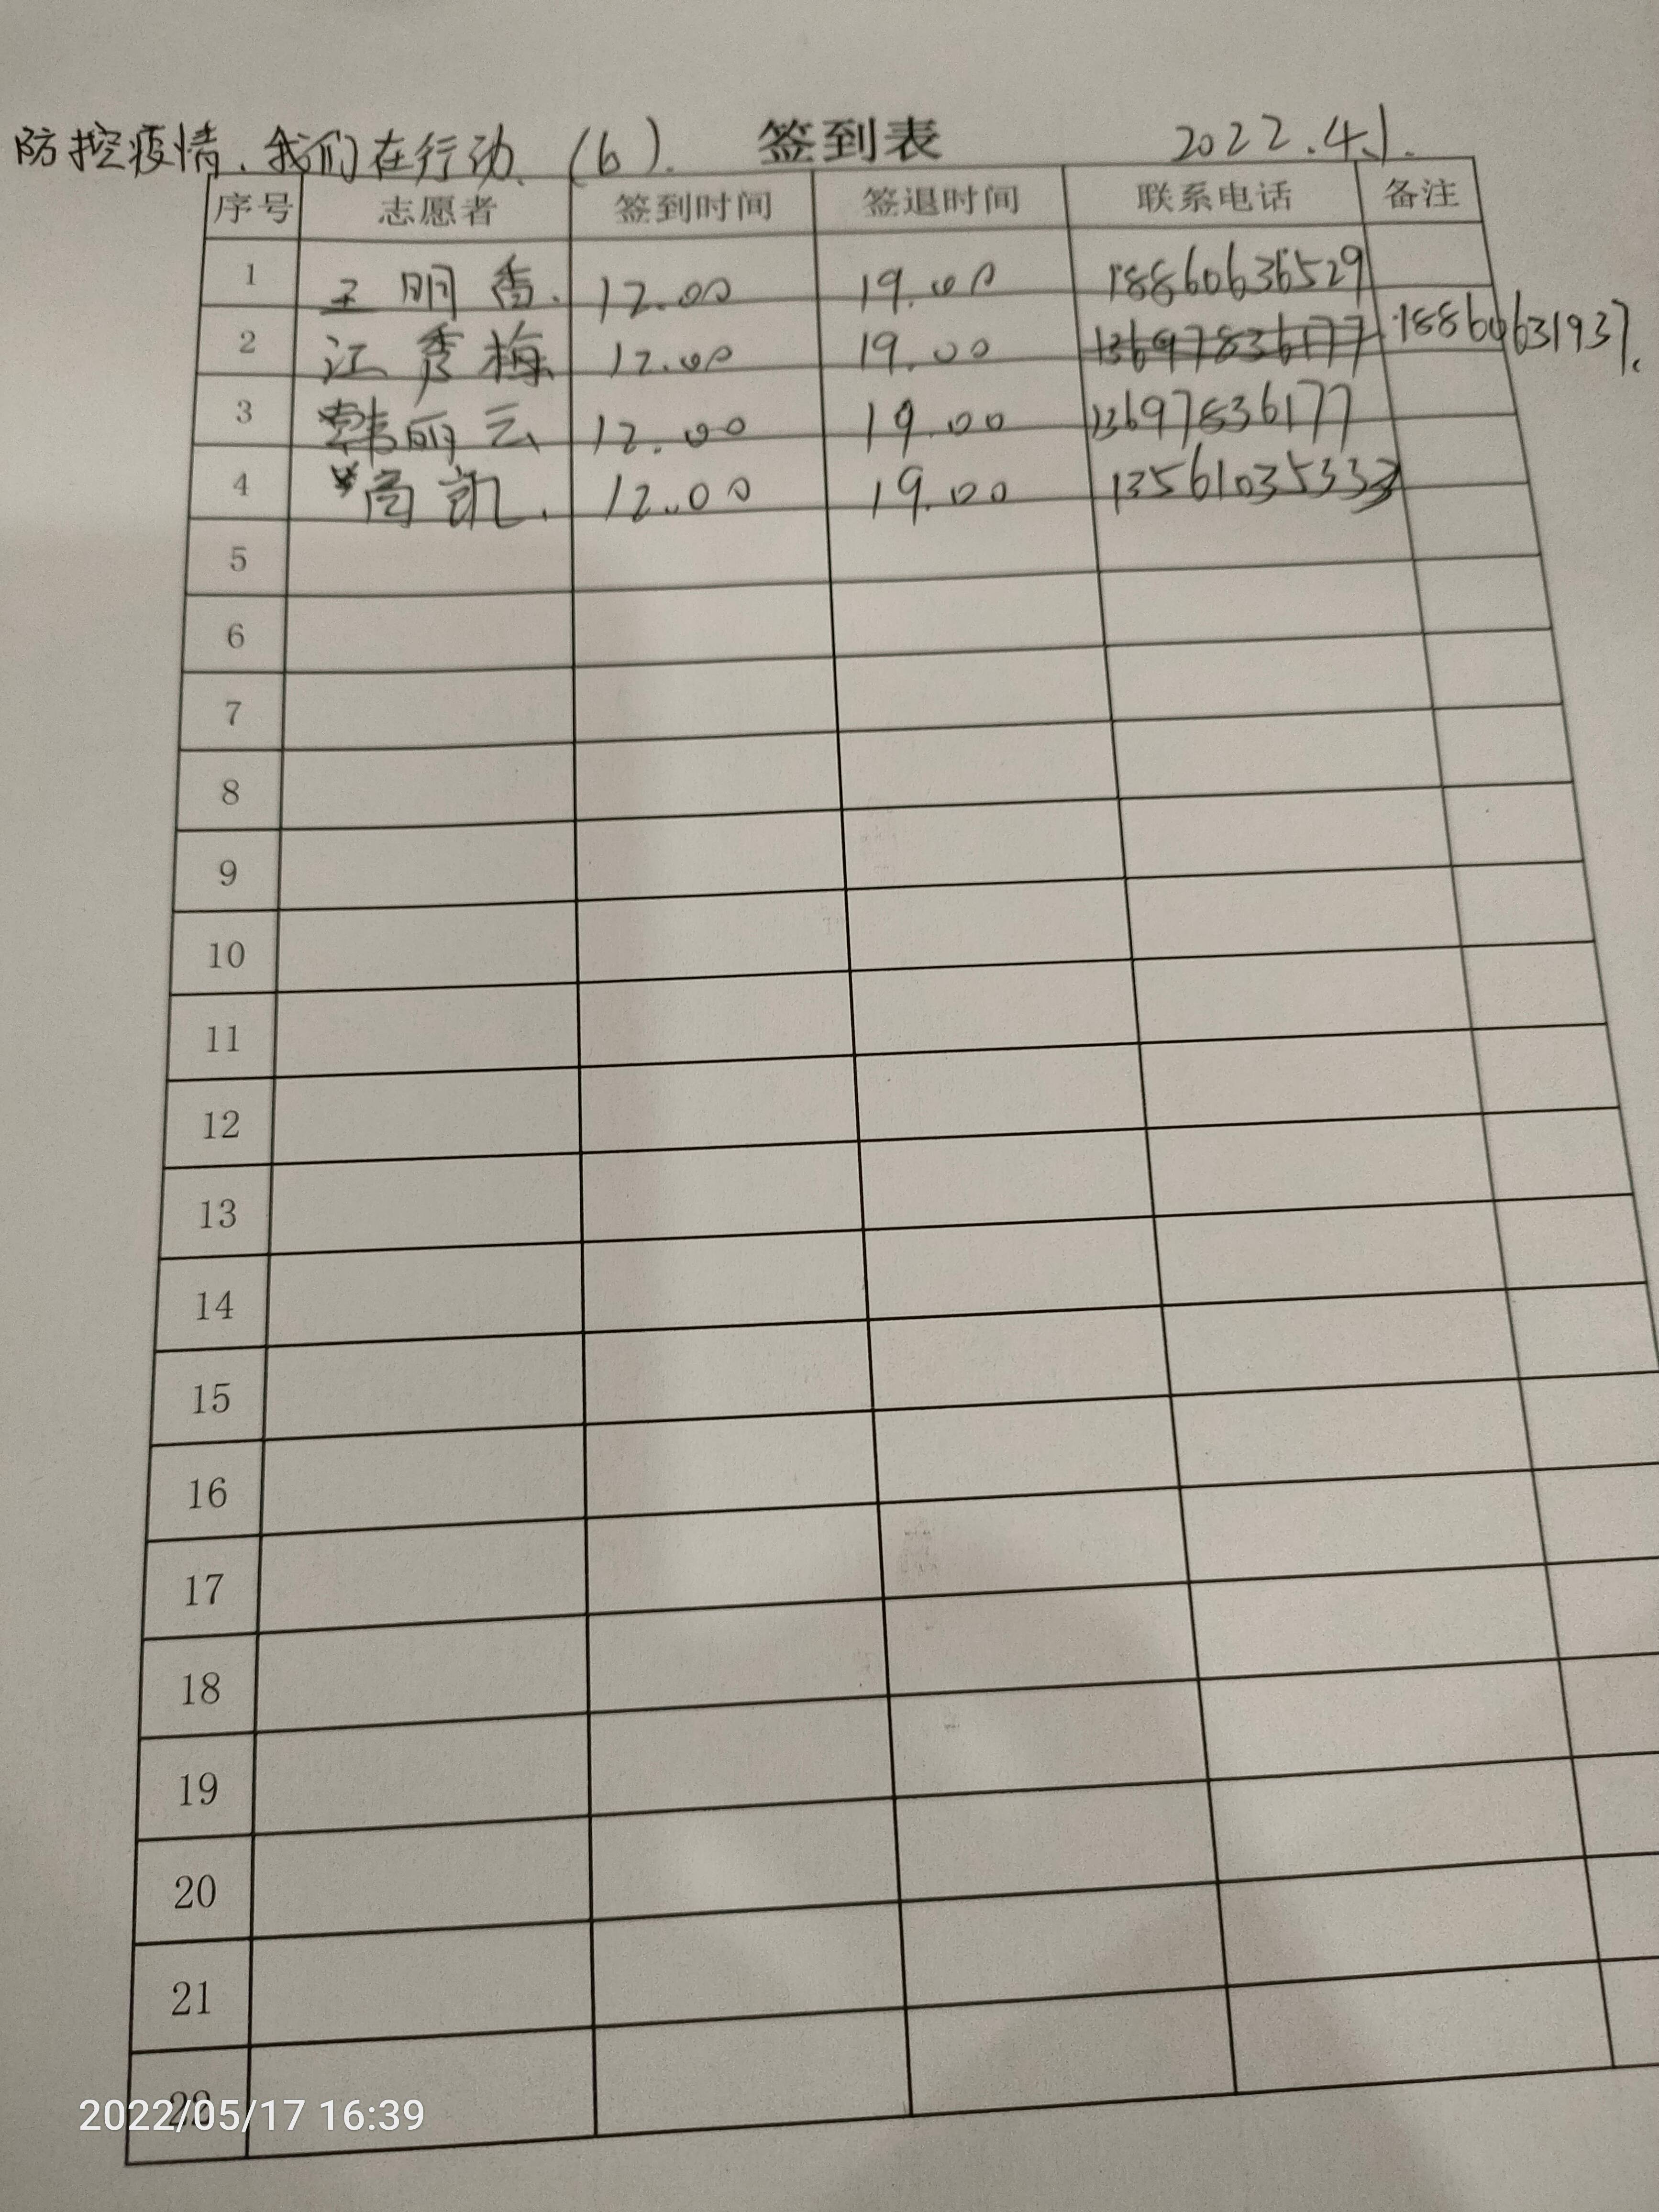 防控疫情.我们在行动.(6). 签到表 2022.4.1.
序号 志愿者 签到时间 签退时间 联系电话 备注
1 王明香. 12.00 19.00 18860636529
2 江秀梅 12.00 19.00 13697836177 18860631937.
3 韩丽云 12.00 19.00 13697836177
4 尚凯. 12.00 19.00 13561035333
5
6
7
8
9
10
11
12
13
14
15
16
17
18
19
20
21
22
2022/05/17 16:39